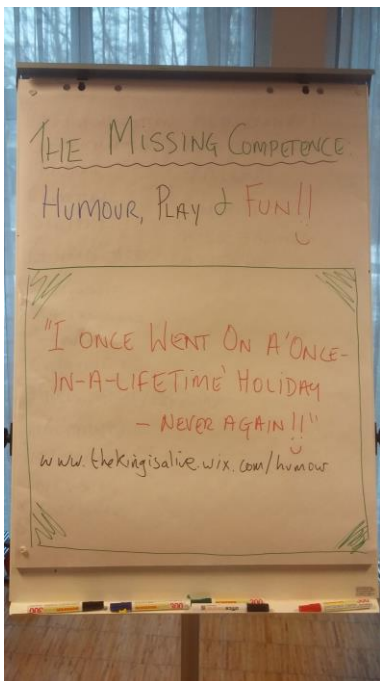 THE MISSING COMPETENCE:
HUMOUR, PLAY & FUN!!
"I ONCE WENT ON A 'ONCE-
IN-A-LIFETIME' HOLIDAY
- NEVER AGAIN!!"
www.thekingisalive.wix.com/humour